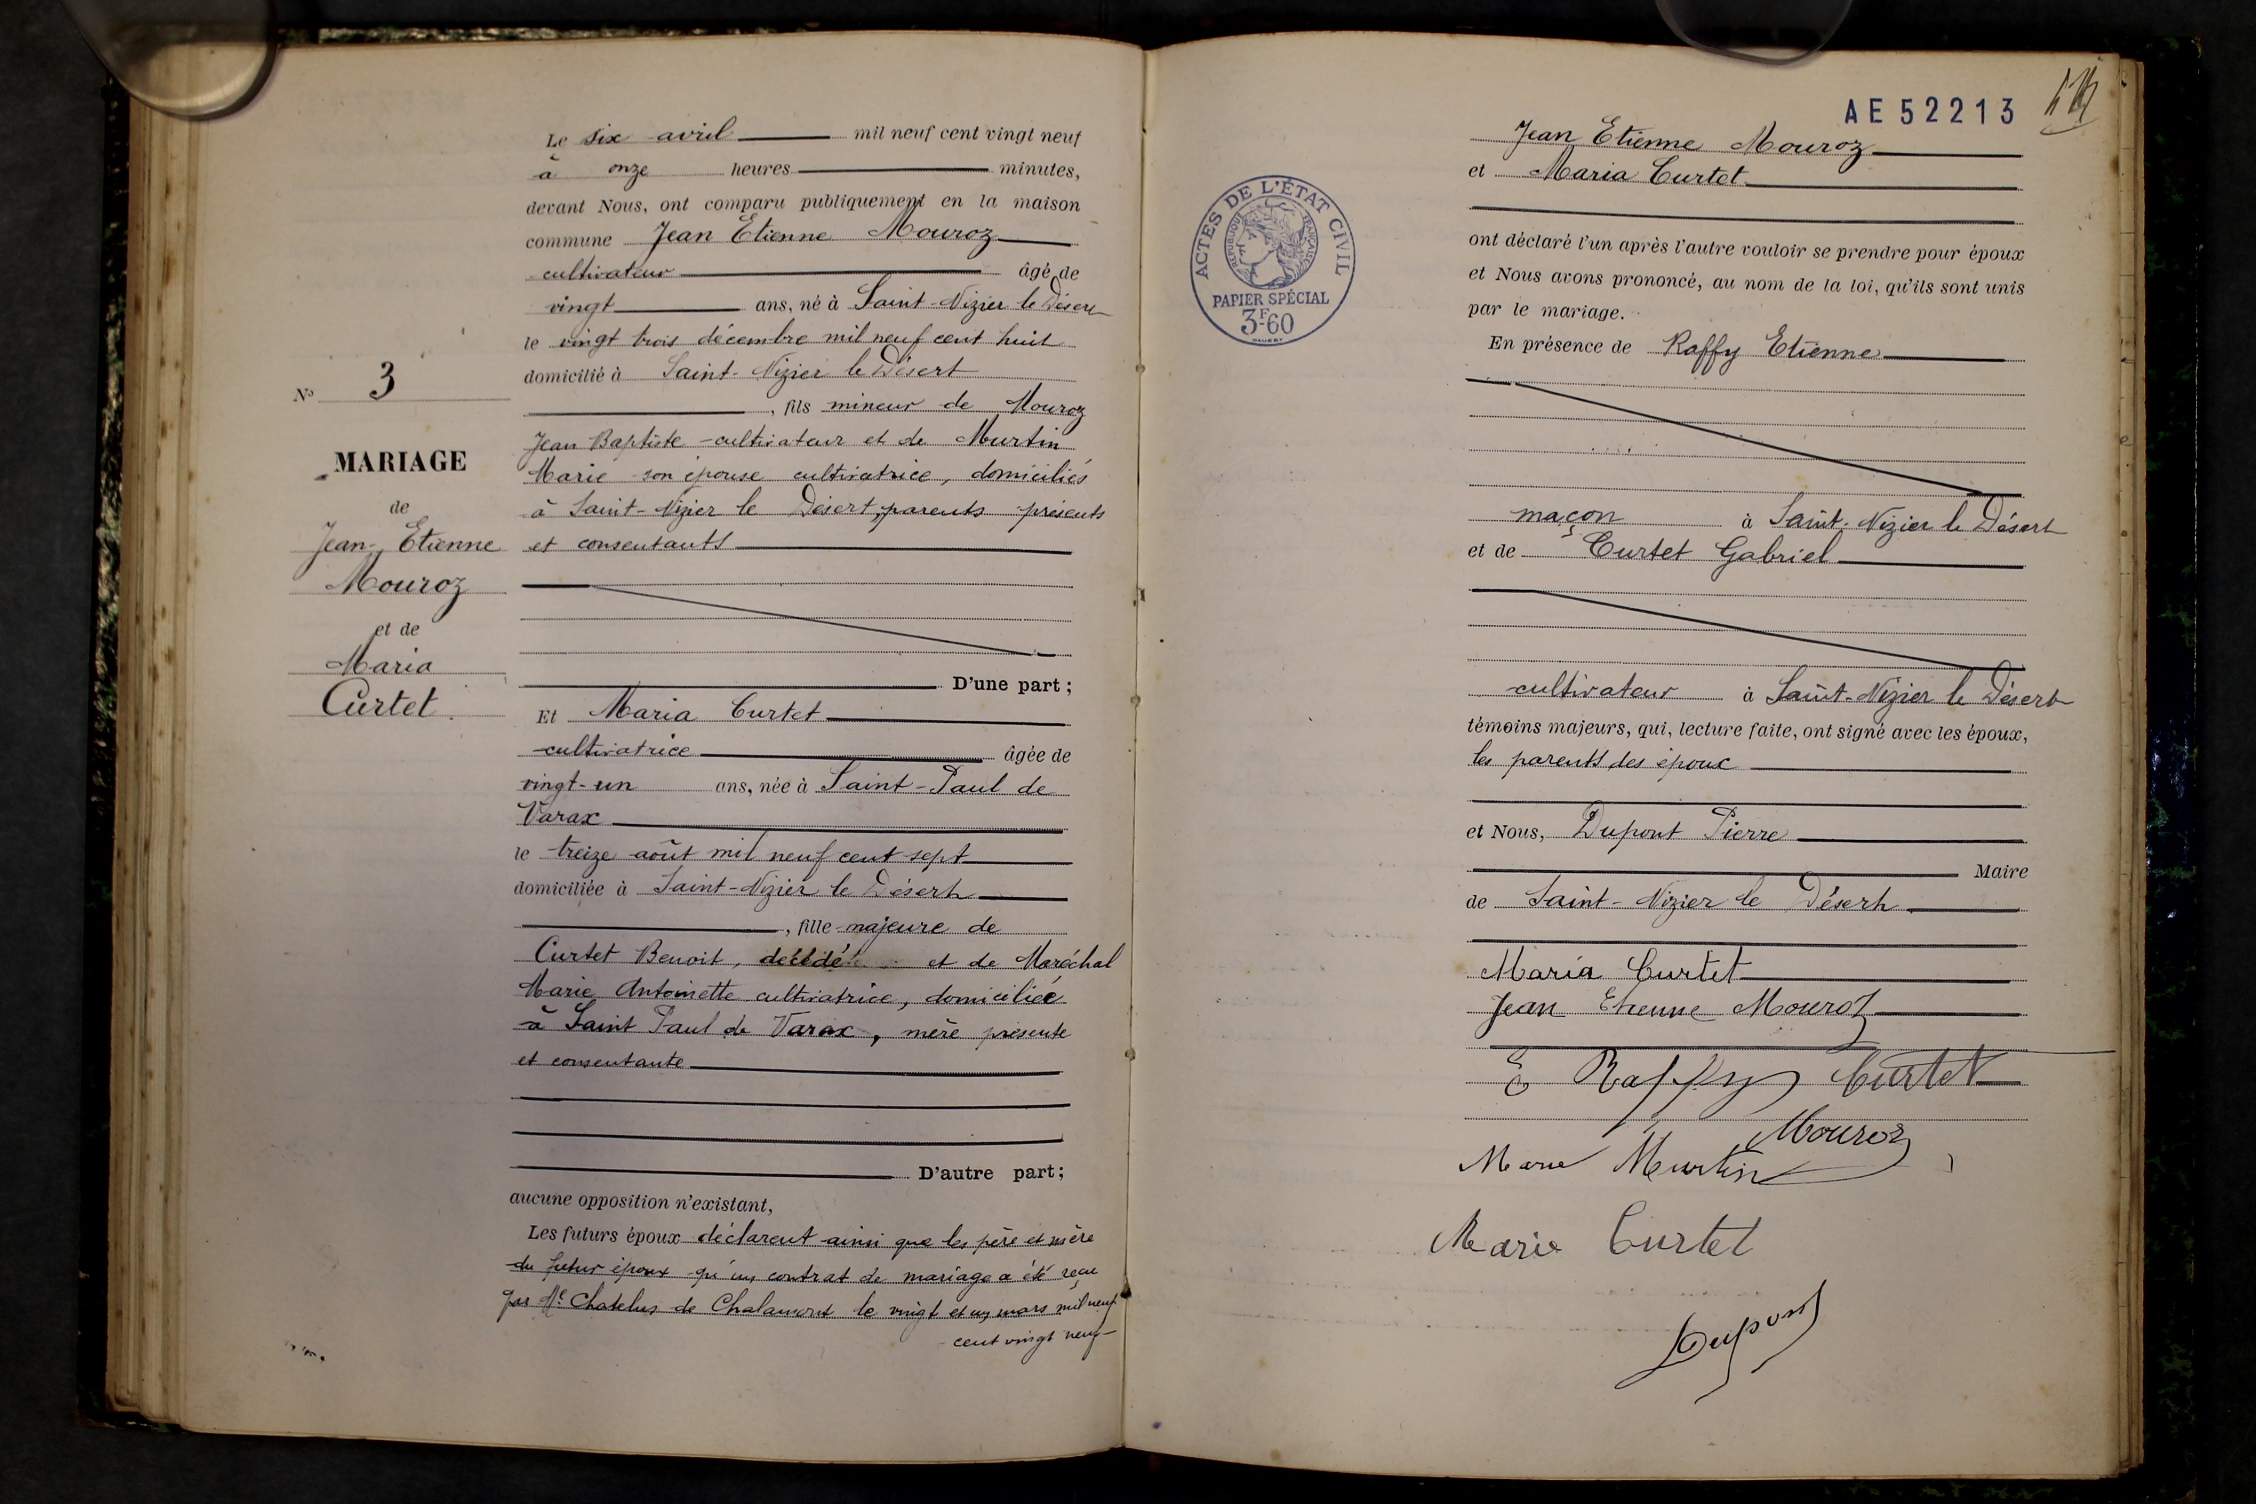 Le six avril mil neuf cent vingt neuf
à onze heures minutes,
devant Nous, ont comparu publiquement en la maison
commune Jean Etienne Mouroz
cultivateur âgé de
vingt ans, né à Saint-Nizier le Désert
le vingt trois décembre mil neuf cent huit
domicilié à Saint-Nizier le Désert
, fils mineur de Mouroz
Jean Baptiste cultivateur et de Murtin
Marie son épouse cultivatrice, domiciliés
à Saint-Nizier le Désert, parents présents
et consentants
D'une part ;
Et Maria Curtet
cultivatrice âgée de
vingt-un ans, née à Saint-Paul de
Varax
le treize août mil neuf cent sept
domiciliée à Saint-Nizier le Désert
, fille majeure de
Curtet Benoit, décédé et de Maréchal
Marie Antoinette cultivatrice, domiciliée
à Saint Paul de Varax, mère présente
et consentante
D'autre part ;
aucune opposition n'existant,
Les futurs époux déclarent ainsi que les père et mère
du futur époux qu'un contrat de mariage a été reçu
par Me Chatelus de Chalamont le vingt et un mars mil neuf
cent vingt neuf
No 3
MARIAGE
de
Jean-Etienne
Mouroz
et de
Maria
Curtet
AE 52213
ACTES DE L'ÉTAT CIVIL
RÉPUBLIQUE FRANÇAISE
PAPIER SPÉCIAL
3F60
Jean Etienne Mouroz
et Maria Curtet
ont déclaré l'un après l'autre vouloir se prendre pour époux
et Nous avons prononcé, au nom de la loi, qu'ils sont unis
par le mariage.
En présence de Raffy Etienne
maçon à Saint-Nizier le Désert
et de Curtet Gabriel
cultivateur à Saint-Nizier le Désert
témoins majeurs, qui, lecture faite, ont signé avec les époux,
les parents des époux
et Nous, Dupont Pierre
Maire
de Saint-Nizier le Désert
Maria Curtet
Jean Etienne Mouroz
E Raffy Curtet
Mouroz
Marie Murtin
Marie Curtet
Dupont